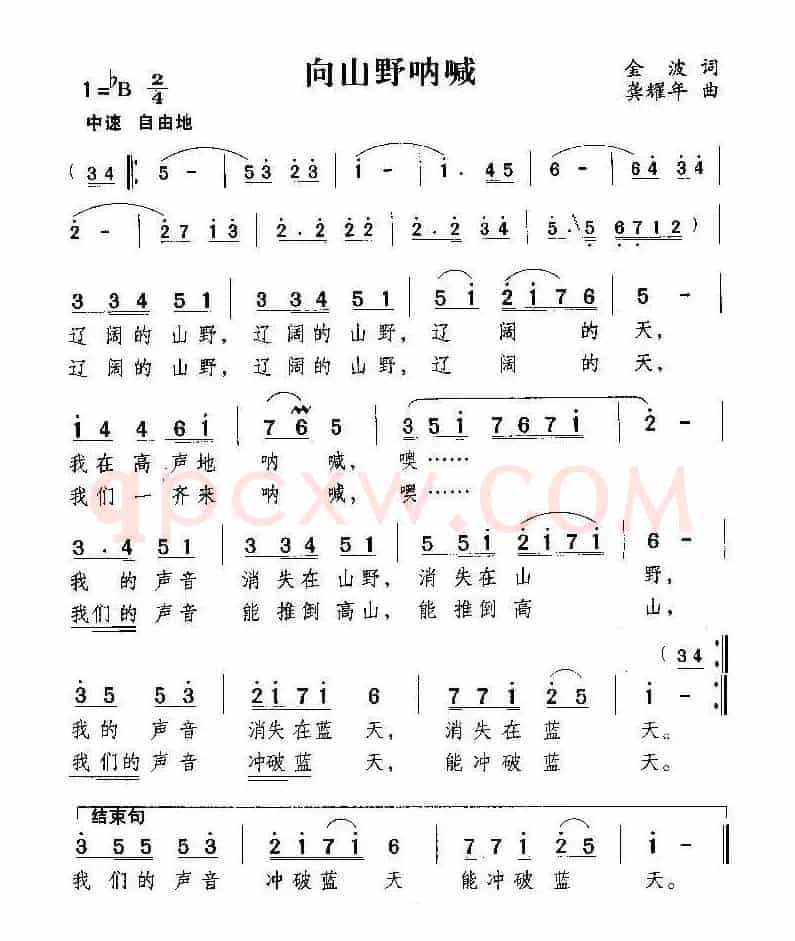 向山野呐喊
1=♭B 2/4
金波 词
龚耀年 曲
中速 自由地
( 3 4 ‖: 5 - | 5 3 2 3 | 1 - | 1 . 4 5 | 6 - | 6 4 3 4 |
2 - | 2 7 1 3 | 2 . 2 2 | 2 . 2 3 4 | 5 . 5 6 7 1 2 ) |
3 3 4 5 1 | 3 3 4 5 1 | 5 1 2 1 7 6 | 5 - |
辽阔的山野,辽阔的山野,辽阔的天,
辽阔的山野,辽阔的山野,辽阔的天,
1 4 4 6 1 | 7 6 5 | 3 5 1 7 6 7 1 | 2 - |
我在高声地呐喊,噢……
我们一齐来呐喊,噢……
qpcxw.COM
3 . 4 5 1 | 3 3 4 5 1 | 5 5 1 2 1 7 1 | 6 - |
我的声音消失在山野,消失在山野,
我们的声音能推倒高山,能推倒高山,
( 3 4 :‖
3 5 5 3 | 2 1 7 1 6 | 7 7 1 2 5 | 1 - :‖
我的声音消失在蓝天,消失在蓝天。
我们的声音冲破蓝天,能冲破蓝天。
结束句
3 5 5 5 3 | 2 1 7 1 6 | 7 7 1 2 5 | 1 - ‖
我们的声音冲破蓝天能冲破蓝天。